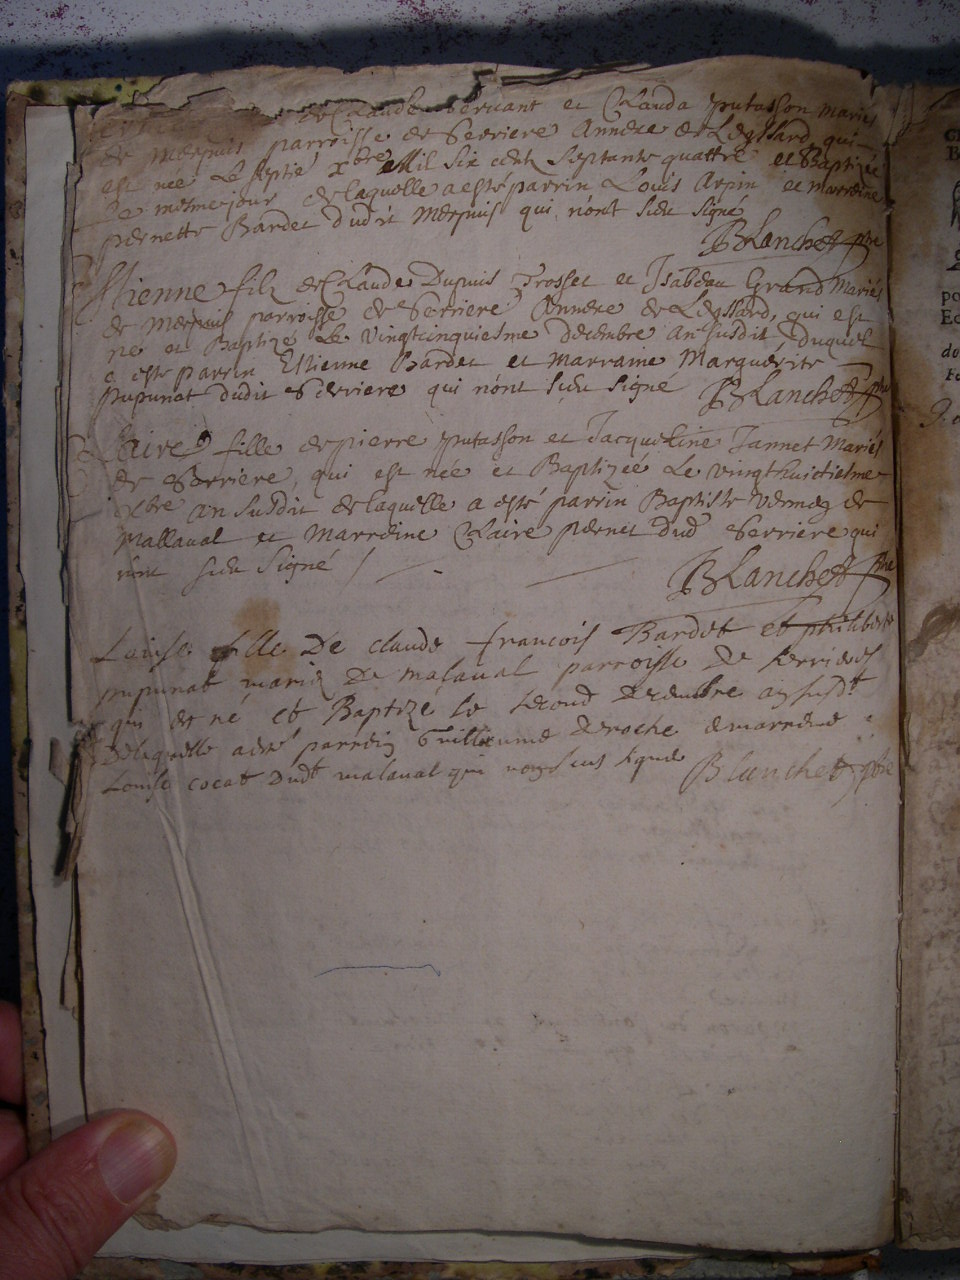 de Claude servant et Clauda putasson mariés
de Merpuis parroisse de Serriere Annexe de Leyssard, qui
est née le septie xbre Mil six centz septante quattre et Baptizée
le mesme jour de laquelle a esté parrin Louis Arpin et marreine
pernette Bardet dudit Merpuis qui n'ont sceu signé
Blanchet ptre
Estienne filz de Claude Dupuis Trosset et Isabeau Grand Mariés
de Merpuis parroisse de Serriere Annexe de Leyssard, qui est
né et Baptizé le vingtcinquiesme decembre an susdit duquel
a esté parrin Estienne Bardet et Marraine Marguerite
pupunat dudit Serriere qui n'ont sceu signe Blanchet ptre
Claire fille de pierre putasson et Jacqueline Jannet Mariés
de Serriere, qui est née et Baptizée le vingthuictiesme
xbre an susdit de laquelle a esté parrin Baptiste Vernez de
Mallaval et Marreine Claire pernet dud Serriere qui
n'ont sceu Signé
Blanchet ptre
Louise fille De claude francois Bardet et philiberte
pupunat mariez De malaval parroisse De serrieres
qui est né et Baptizé le second decembre an susdt
De laquelle a esté parrein Guillaume Deroche et marreine
Louise cocat Dudt malaval qui nont sceu signe Blanchet ptre
G
B
po
Ec
du